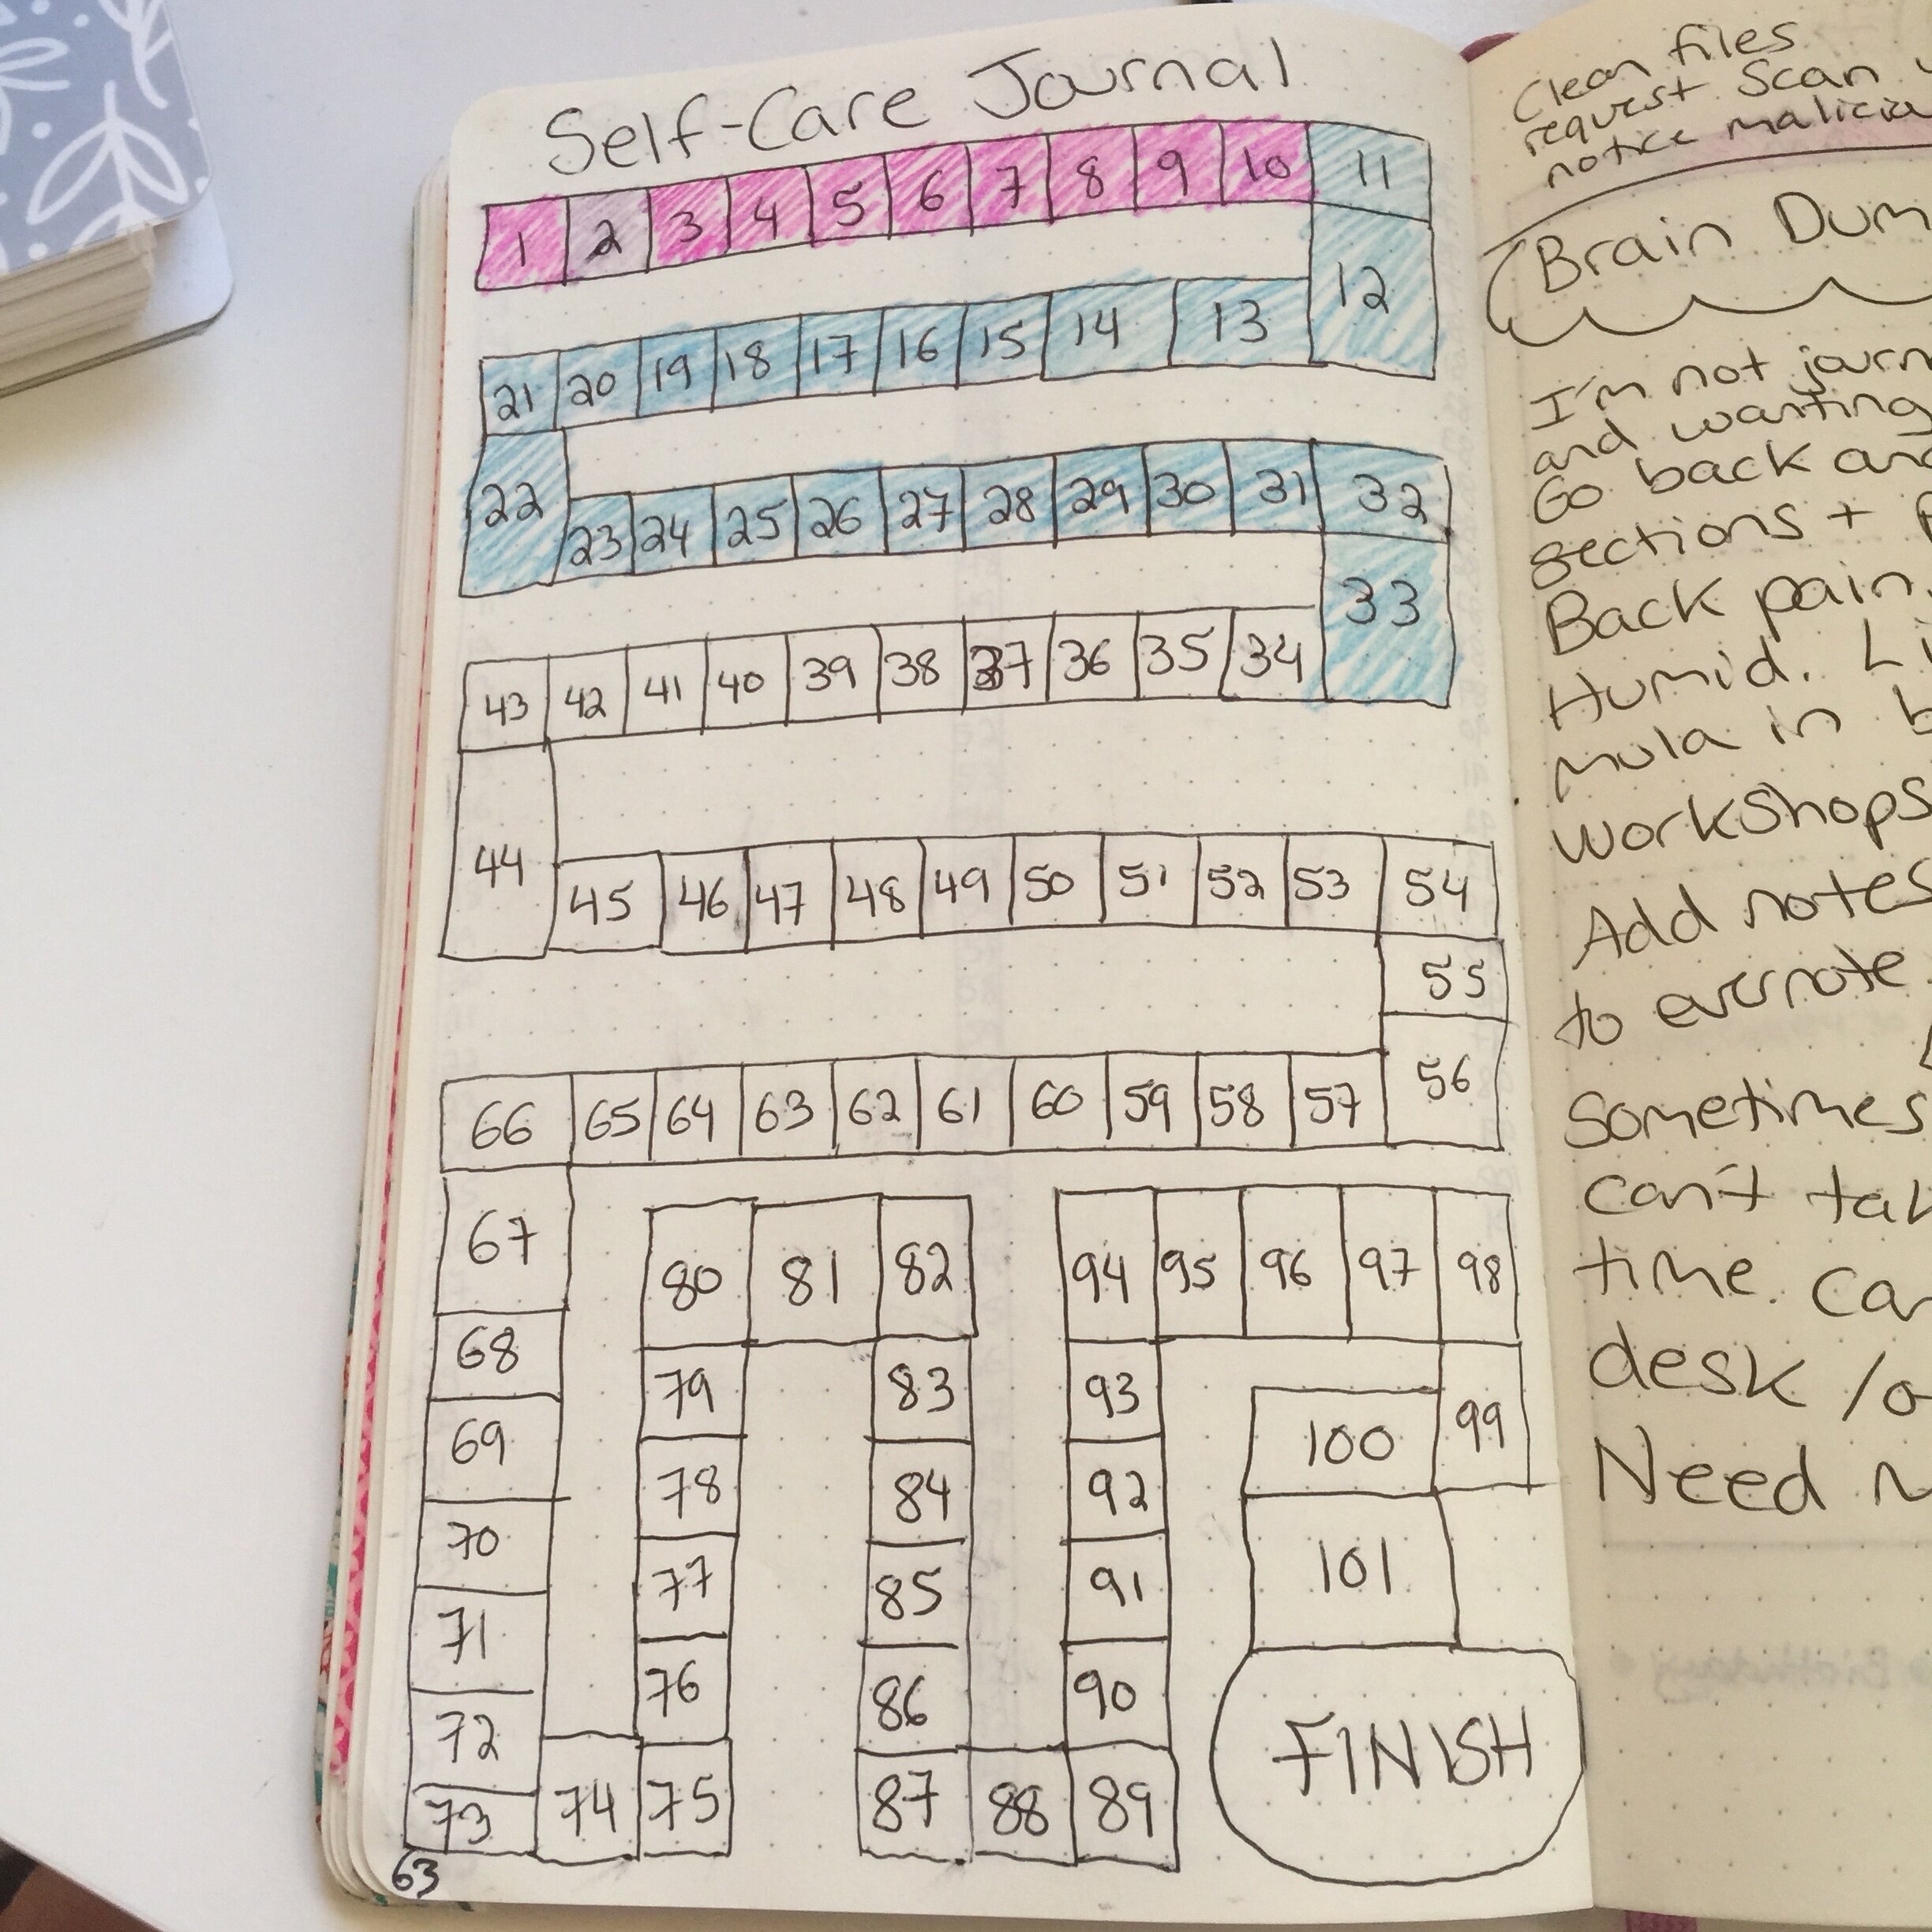 Self-Care Journal
1 2 3 4 5 6 7 8 9 10 11
12
21 20 19 18 17 16 15 14 13
22
23 24 25 26 27 28 29 30 31 32
33
43 42 41 40 39 38 37 36 35 34
44
45 46 47 48 49 50 51 52 53 54
55
56
66 65 64 63 62 61 60 59 58 57
67
80 81 82
94 95 96 97 98
68
79
83
93
99
69
100
78
84
92
70
77
85
91
101
71
76
86
90
72
73 74 75
87 88 89
FINISH
63
Clean files
request Scan
notice
Brain
I'm not
and wanting
Go back
sections +
Back pain.
Humid.
mula in
workshops
Add notes
to evernote
Sometimes
can't
time.
desk /
Need
Birthday